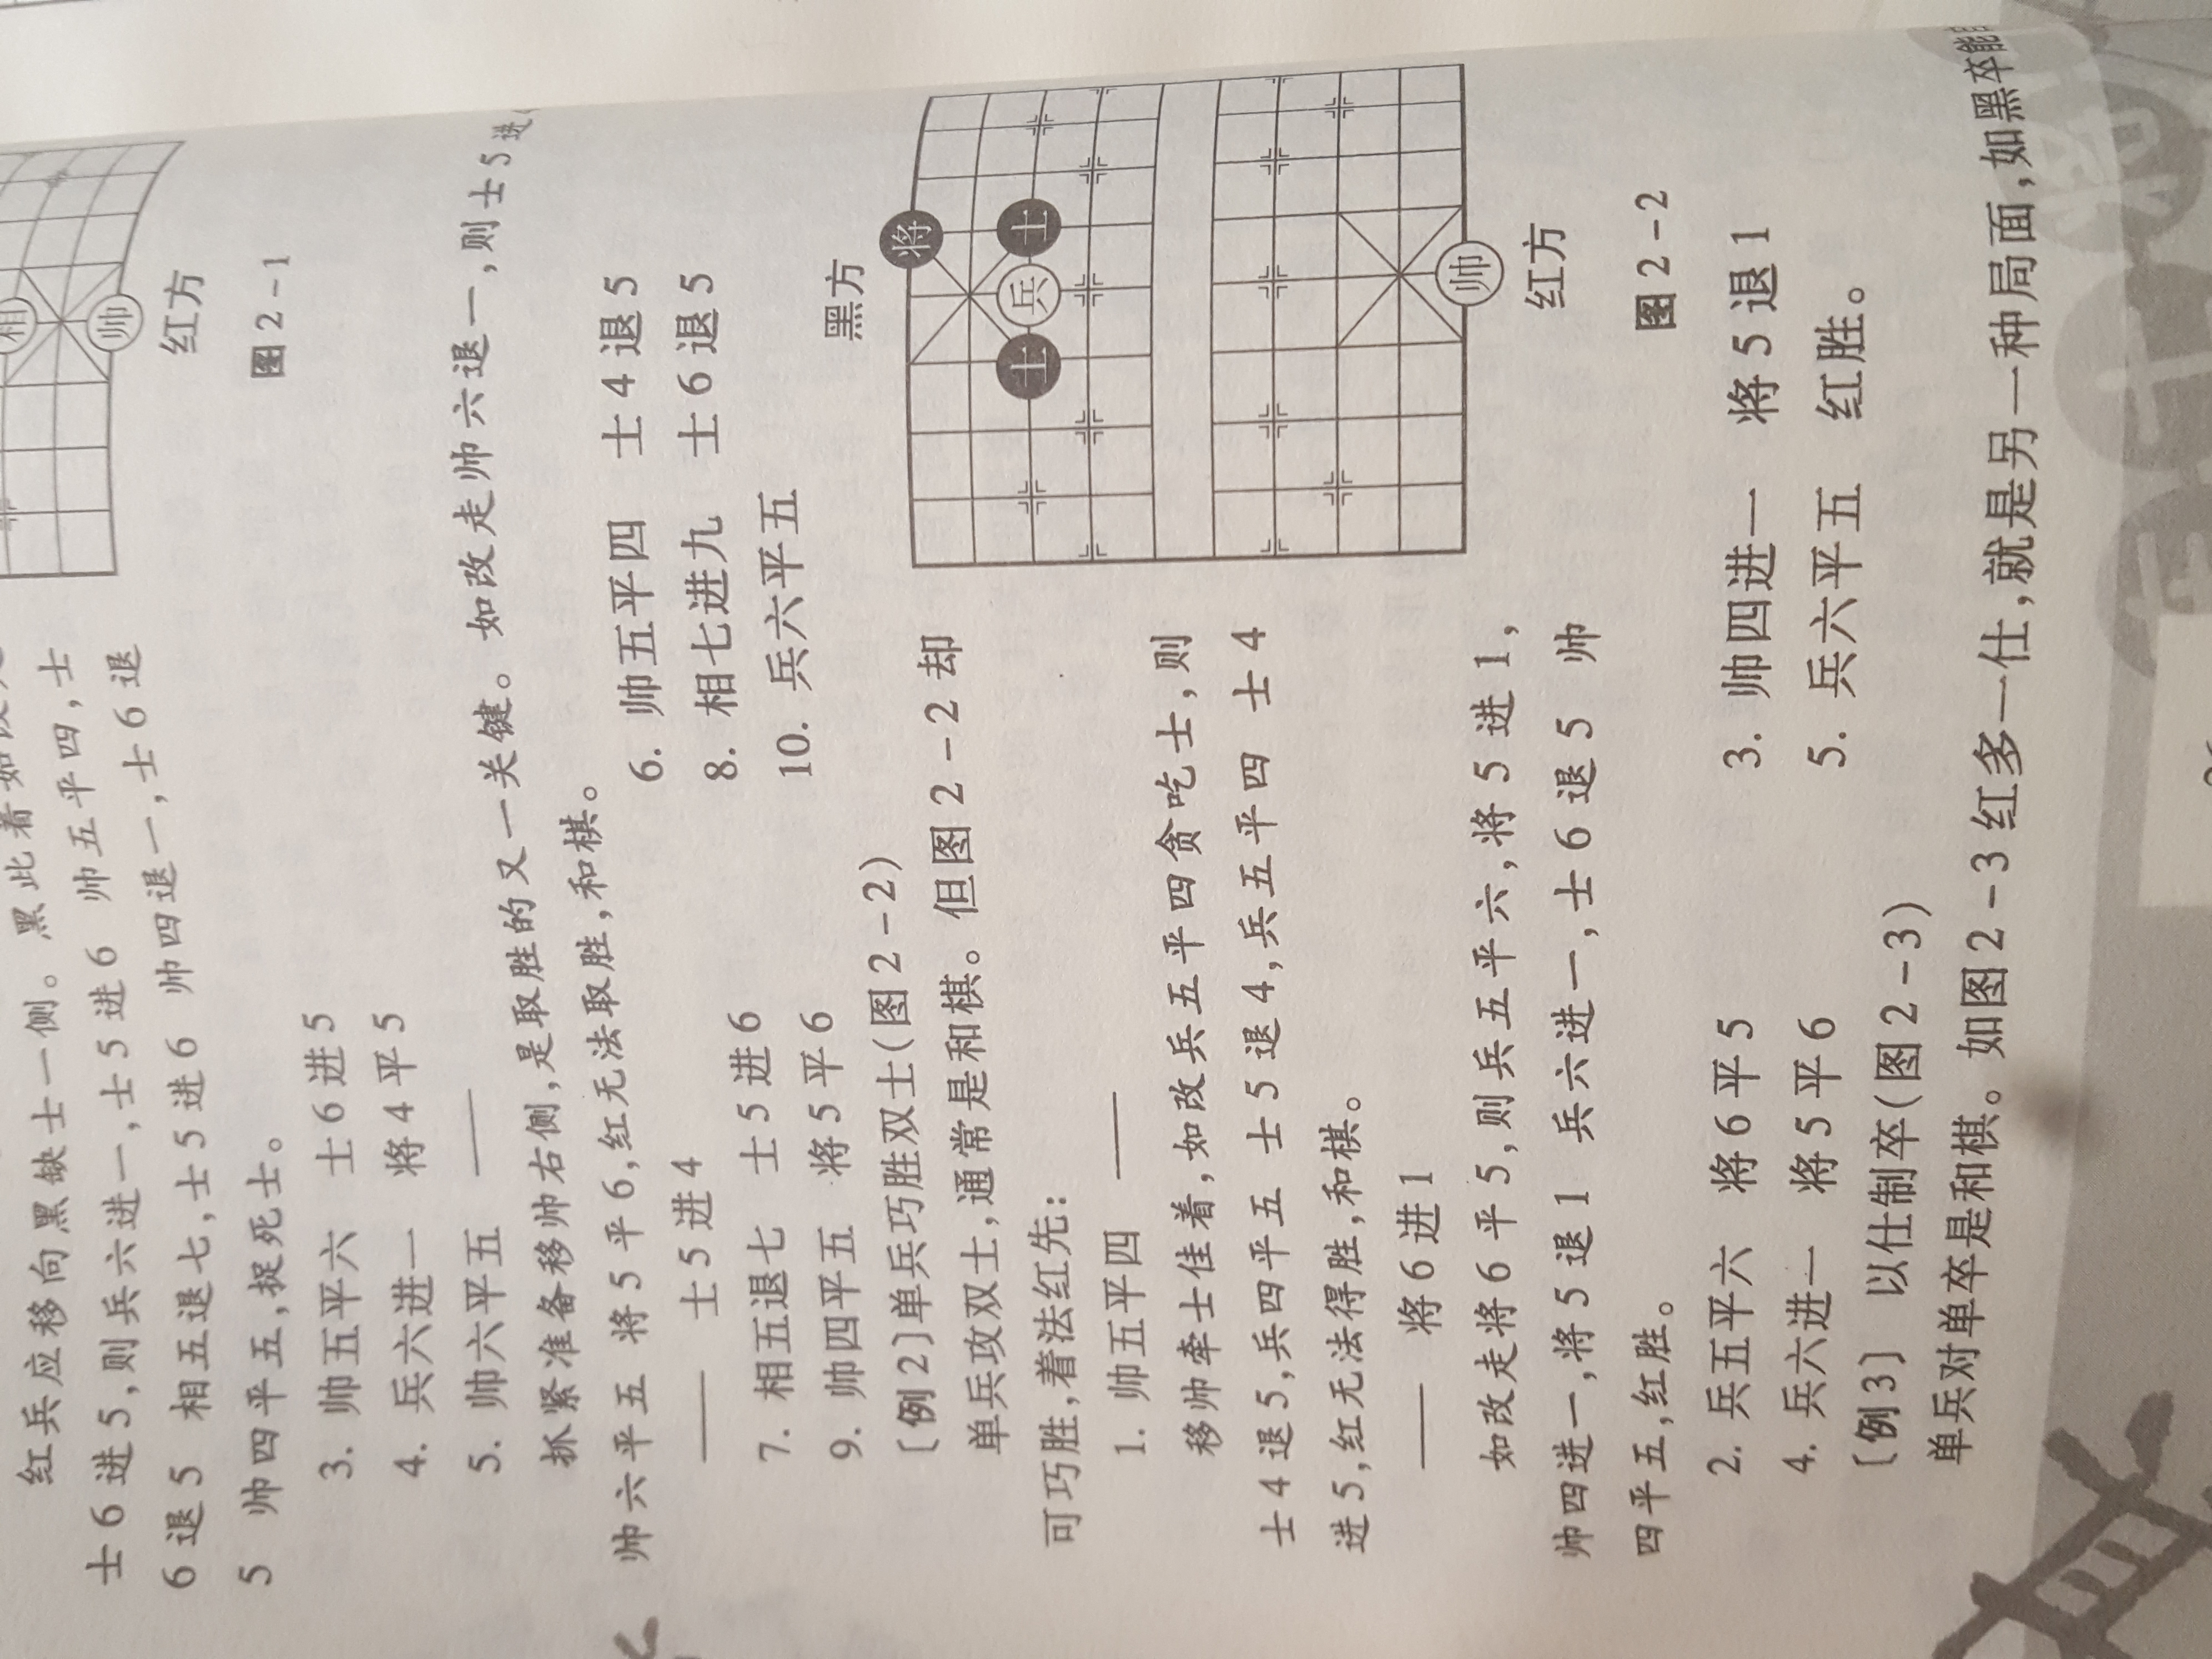 红兵应移向黑缺士一侧。黑此着如改
士6进5,则兵六进一,士5进6 帅五平四,士
6退5 相五退七,士5进6 帅四退一,士6退
5 帅四平五,捉死士。
相
帅
红方
图2-1
3. 帅五平六 士6进5
4. 兵六进一 将4平5
5. 帅六平五 ——
抓紧准备移帅右侧,是取胜的又一关键。如改走帅六退一,则士5进
帅六平五 将5平6,红无法取胜,和棋。
—— 士5进4 6. 帅五平四 士4退5
7. 相五退七 士5进6 8. 相七进九 士6退5
9. 帅四平五 将5平6 10. 兵六平五
〔例2〕单兵巧胜双士(图2-2)
单兵攻双士,通常是和棋。但图2-2却
可巧胜,着法红先:
1. 帅五平四 ——
移帅牵士佳着,如改兵五平四贪吃士,则
士4退5,兵四平五 士5退4,兵五平四 士4
进5,红无法得胜,和棋。
—— 将6进1
如改走将6平5,则兵五平六,将5进1,
帅四进一,将5退1 兵六进一,士6退5 帅
四平五,红胜。
黑方
将
士
兵
士
帅
红方
图2-2
2. 兵五平六 将6平5 3. 帅四进一 将5退1
4. 兵六进一 将5平6 5. 兵六平五 红胜。
〔例3〕 以仕制卒(图2-3)
单兵对单卒是和棋。如图2-3红多一仕,就是另一种局面,如黑卒能